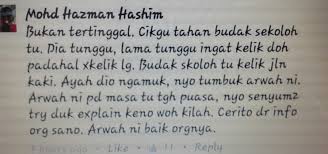 Mohd Hazman Hashim
Bukan tertinggal. Cikgu tahan budak sekoloh
tu. Dia tunggu, lama tunggu ingat kelik doh
padahal xkelik lg. Budak skoloh tu kelik jln
kaki. Ayah dio ngamuk, nyo tumbuk arwah ni.
Arwah ni pd masa tu tgh puasa, nyo senyum2
try duk explain keno woh kilah. Cerito dr info
org sano. Arwah ni baik orgnya.
9 hours ago · Like · 11 · Reply